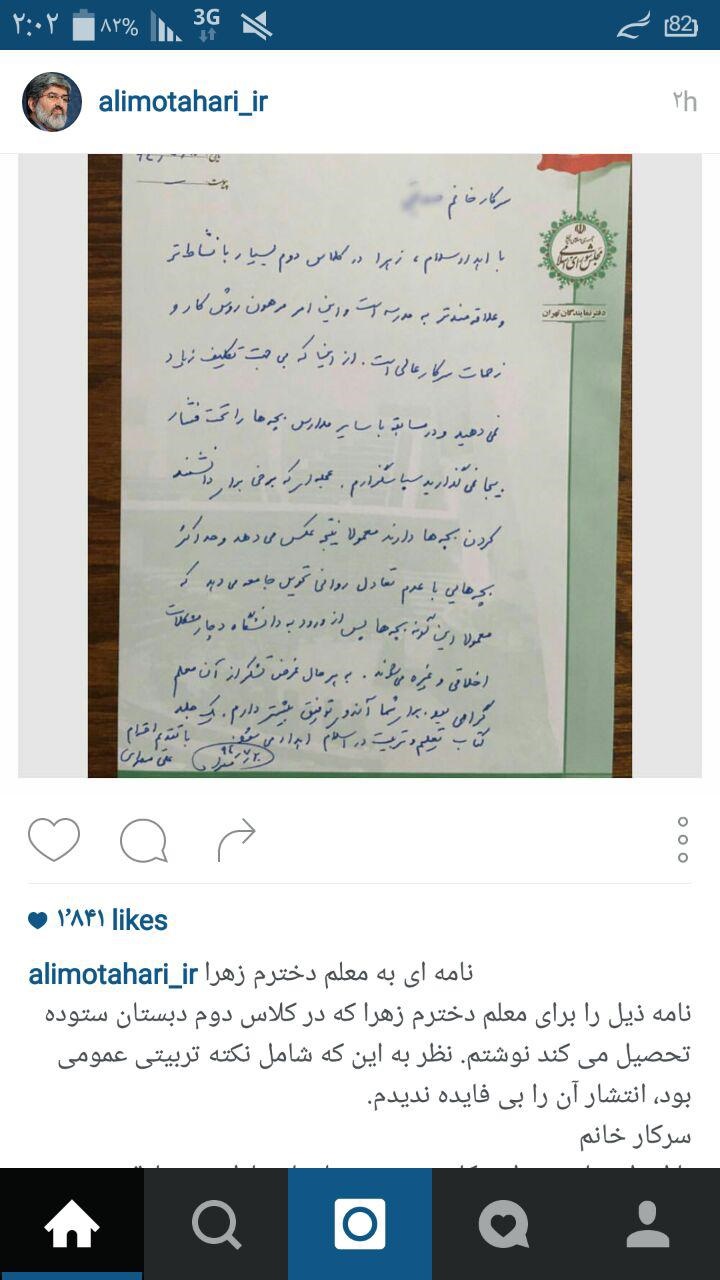 ۲:۰۲ ۸۲% 3G 82
alimotahari_ir ۲h
پیوست
سرکار خانم
جمهوری اسلامی ایران
مجلس شورای اسلامی
دفتر نمایندگان تهران
با اهداء سلام، زهرا در کلاس دوم بسیار با نشاط‌تر
و علاقه‌مندتر به مدرسه است و این امر مرهون روش کار و
زحمات سرکار عالی است. از اینکه بی جهت تکلیف زیاد
نمی‌دهید و در مسابقه با سایر مدارس بچه‌ها را تحت فشار
بیجا نمی‌گذارید سپاسگزارم. عجله‌ای که برخی برای دانشمند
کردن بچه‌ها دارند معمولا نتیجه عکس می‌دهد و حداکثر
بچه‌هایی با عدم تعادل روانی تحویل جامعه می‌دهد که
معمولا این گونه بچه‌ها پس از ورود به دانشگاه دچار مشکلات
اخلاقی و غیره می‌شوند. به هر حال غرض تشکر از آن معلم
گرامی بود. برای شما آرزوی توفیق بیشتر دارم. یک جلد
کتاب تعلیم و تربیت در اسلام اهداء می‌شود.
با تقدیم احترام
علی مطهری
۱٬۸۴۱ likes
alimotahari_ir نامه ای به معلم دخترم زهرا
نامه ذیل را برای معلم دخترم زهرا که در کلاس دوم دبستان ستوده
تحصیل می کند نوشتم. نظر به این که شامل نکته تربیتی عمومی
بود، انتشار آن را بی فایده ندیدم.
سرکار خانم